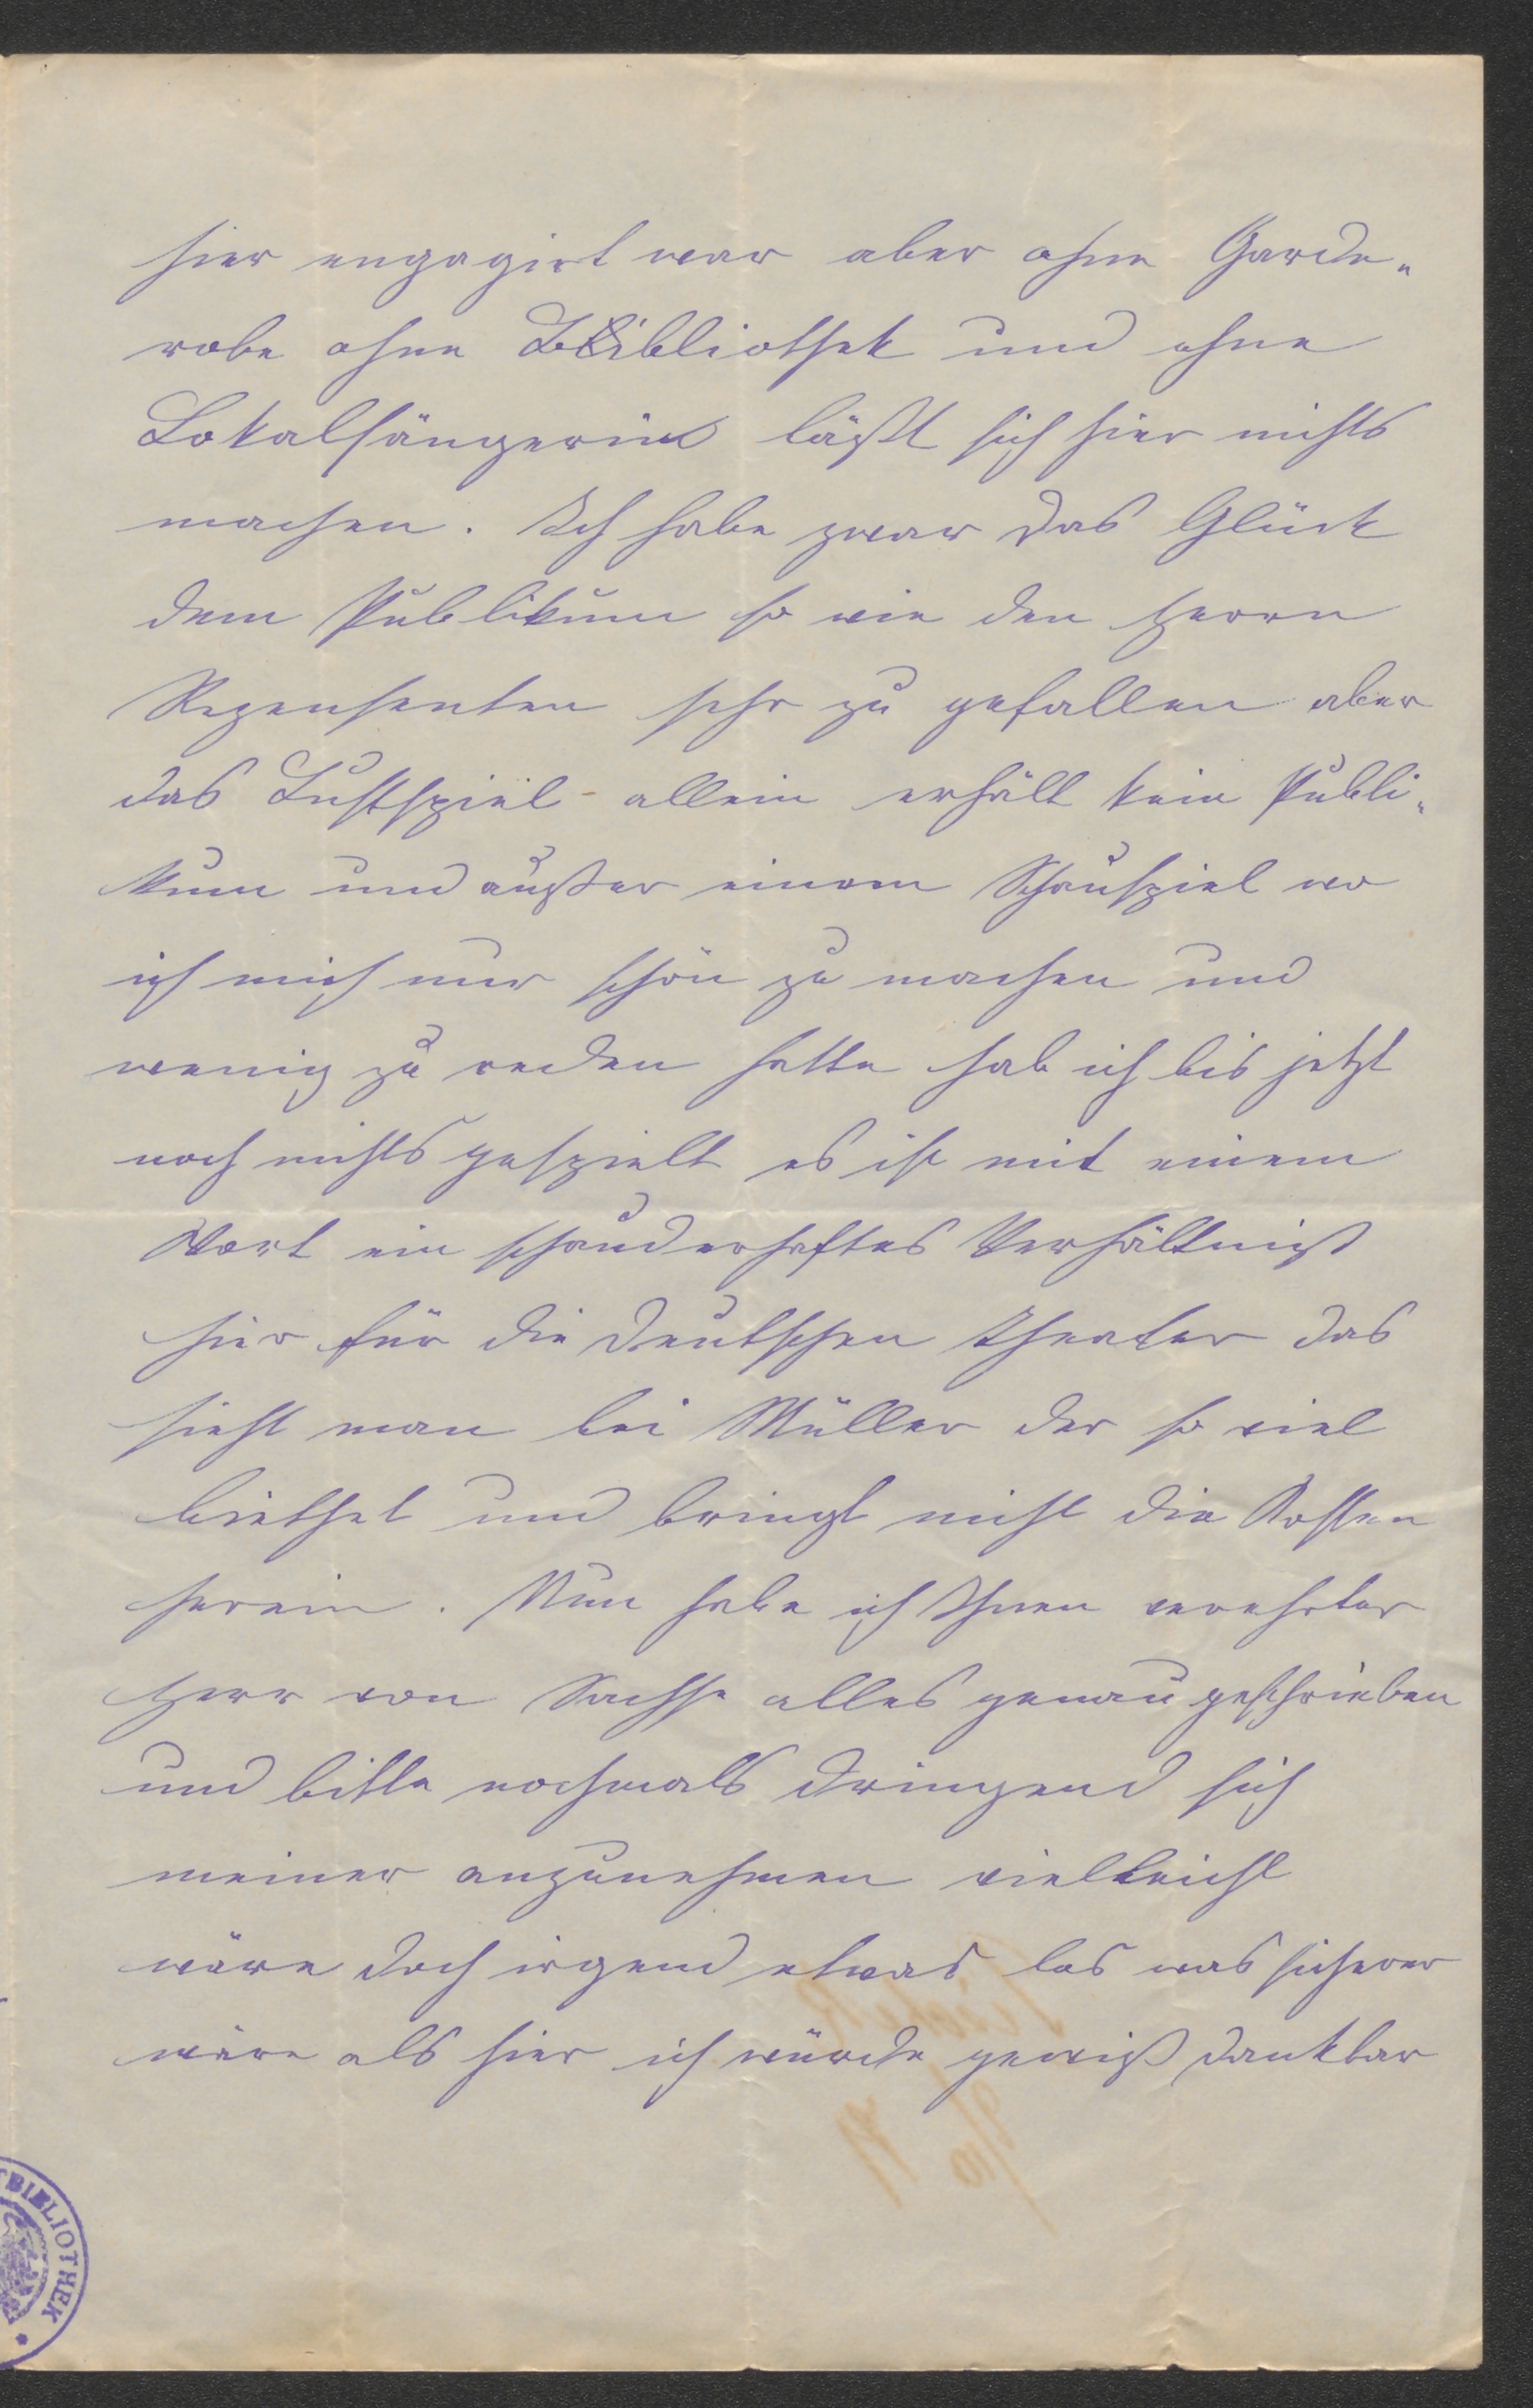 hier engagirt war aber ohne Garde„
robe ohne Bibliothek und ohne
Lokalsängerin läßt sich hier nichts
machen. Ich habe zwar das Glück
dem Publikum so wie den Herrn
Rezensenten sehr zu gefallen aber
das Lustspiel allein erhält kein Publi„
kum und außer einem Schauspiel wo
ich mich nur schön zu machen und
wenig zu reden hatte hab ich bis jetzt
noch nichts gespielt es ist mit einem
Wort ein schauderhaftes Verhältniß
hier für die Deutschen Theater das
sieht man bei Müller der so viel
biethet und bringt nicht die Kosten
herein. Nun habe ich Ihnen verehrter
Herr von Sachse alles genau geschrieben
und bitte nochmals dringend sich
meiner anzunehmen vielleicht
wäre doch irgend etwas los was sicherer
wäre als hier ich würde gewiß dankbar
BIBLIOTHEK